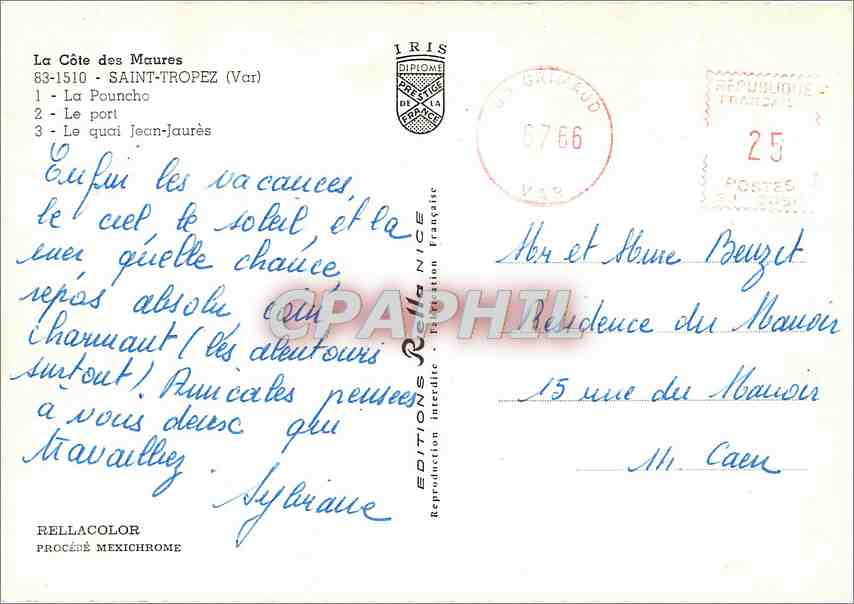 La Côte des Maures
83-1510 - SAINT-TROPEZ (Var)
1 - La Pouncho
2 - Le port
3 - Le quai Jean-Jaurès
Enfin les vacances,
le ciel, le soleil, et la
mer quelle chance,
repos absolu, coin
charmant (les alentours
surtout). Amicales pensées
à vous deux qui
travaillez.
Sylviane
RELLACOLOR
PROCÉDÉ MEXICHROME
IRIS
DIPLOME
PRESTIGE
DE LA
FRANCE
EDITIONS Rella NICE
Reproduction interdite - Fabrication Française
GRIMAUD
6.7.66
VAR
REPUBLIQUE
FRANÇAISE
25
POSTES
Mr et Mme Beuzet
Résidence du Manoir
15 rue du Manoir
14. Caen
CPAPHIL